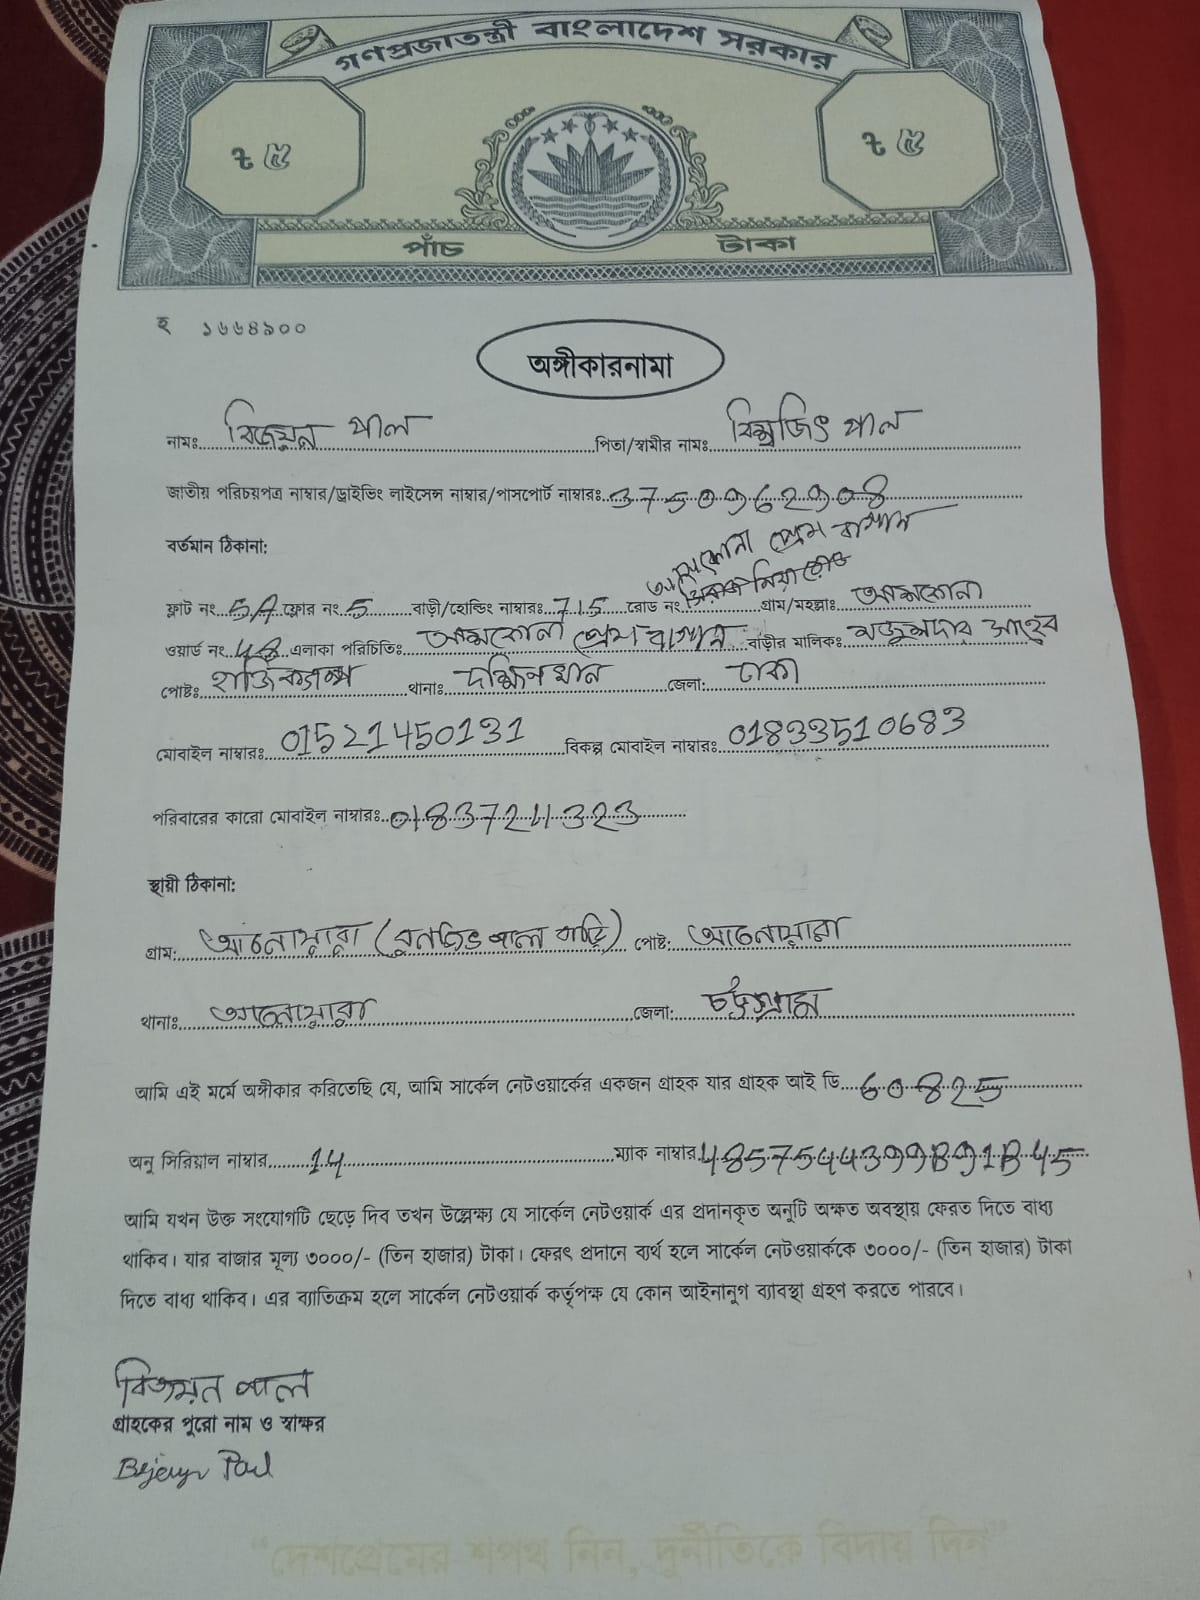 গণপ্রজাতন্ত্রী বাংলাদেশ সরকার
৳ ৫ ৳ ৫
পাঁচ টাকা
হ ১৬৬৪৯০০
অঙ্গীকারনামা
নামঃ বিজেয়ন পাল পিতা/স্বামীর নামঃ বিশ্বজিৎ পাল
জাতীয় পরিচয়পত্র নাম্বার/ড্রাইভিং লাইসেন্স নাম্বার/পাসপোর্ট নাম্বারঃ 3750962908
বর্তমান ঠিকানা:
আশকোনা প্রেম বাগান
ফ্লাট নং 5A ফ্লোর নং 5 বাড়ী/হোল্ডিং নাম্বারঃ 715 রোড নং মিয়া রোড গ্রাম/মহল্লাঃ আশকোনা
ওয়ার্ড নং 48 এলাকা পরিচিতিঃ আশকোনা প্রেম বাগান বাড়ীর মালিকঃ মজুমদার সাহেব
পোষ্টঃ হাজিক্যাম্প থানাঃ দক্ষিনখান জেলা: ঢাকা
মোবাইল নাম্বারঃ 01521450131 বিকল্প মোবাইল নাম্বারঃ 01833510683
পরিবারের কারো মোবাইল নাম্বারঃ
স্থায়ী ঠিকানা:
গ্রাম: আনোয়ারা (রনজিত পাল বাড়ি) পোষ্ট: আনোয়ারা
থানাঃ আনোয়ারা জেলা: চট্টগ্রাম
আমি এই মর্মে অঙ্গীকার করিতেছি যে, আমি সার্কেল নেটওয়ার্কের একজন গ্রাহক যার গ্রাহক আই ডি 60825
অনু সিরিয়াল নাম্বার 14 ম্যাক নাম্বার 4857544399B91B45
আমি যখন উক্ত সংযোগটি ছেড়ে দিব তখন উল্লেক্ষ্য যে সার্কেল নেটওয়ার্ক এর প্রদানকৃত অনুটি অক্ষত অবস্থায় ফেরত দিতে বাধ্য
থাকিব। যার বাজার মূল্য ৩০০০/- (তিন হাজার) টাকা। ফেরৎ প্রদানে ব্যর্থ হলে সার্কেল নেটওয়ার্ককে ৩০০০/- (তিন হাজার) টাকা
দিতে বাধ্য থাকিব। এর ব্যাতিক্রম হলে সার্কেল নেটওয়ার্ক কর্তৃপক্ষ যে কোন আইনানুগ ব্যাবস্থা গ্রহণ করতে পারবে।
বিজয়ন পাল
গ্রাহকের পুরো নাম ও স্বাক্ষর
Bejayn Paul
"দেশপ্রেমের শপথ নিন, দুর্নীতিকে বিদায় দিন"